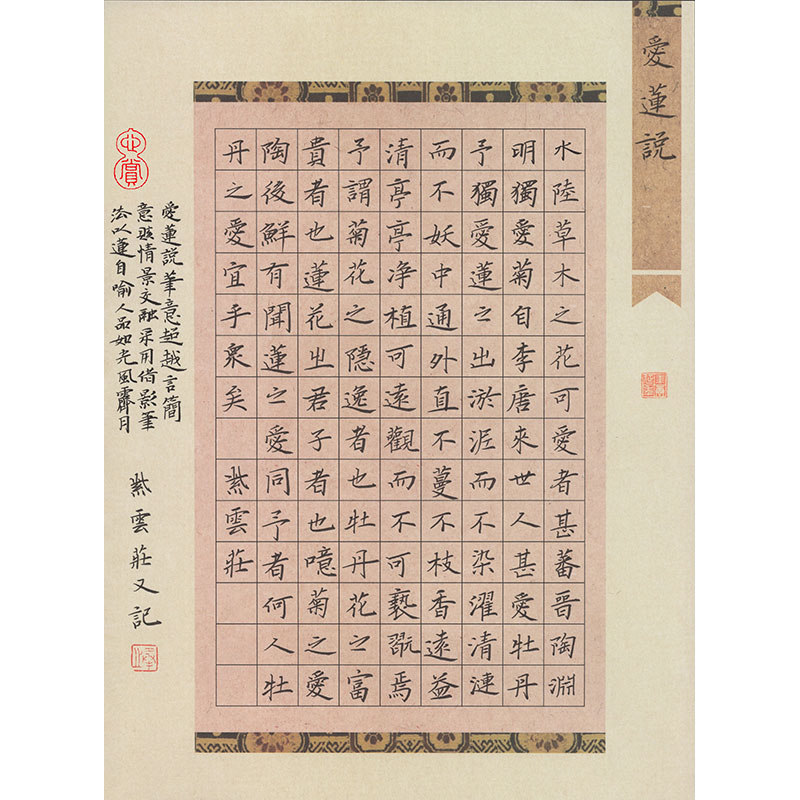 愛蓮説
水陸草木之花可愛者甚蕃晋陶淵
明獨愛菊自李唐來世人甚愛牡丹
予獨愛蓮之出淤泥而不染濯清漣
而不妖中通外直不蔓不枝香遠益
清亭亭净植可遠觀而不可褻翫焉
予謂菊花之隱逸者也牡丹花之富
貴者也蓮花之君子者也噫菊之愛
陶後鮮有聞蓮之愛同予者何人牡
丹之愛宜乎衆矣 紫雲莊
愛蓮説筆意超越言簡
意賅情景交融采用借影筆
法以蓮自喻人品如光風霽月
紫雲莊又記